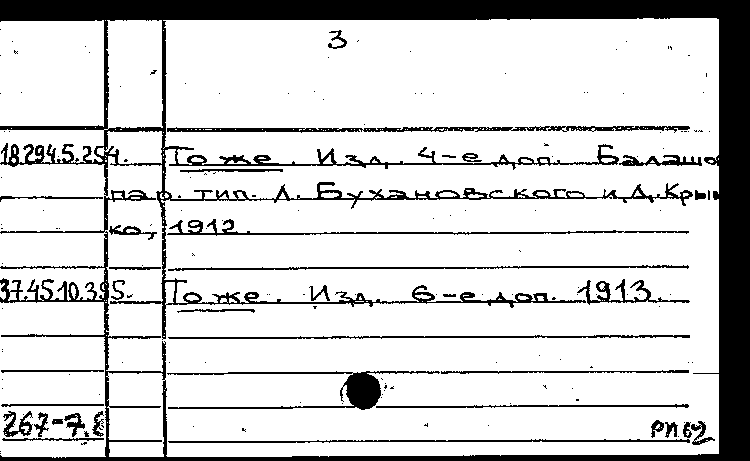 3
18.294.5.254. То же. Изд. 4-е доп. Балашо
пар. тип. Л. Бухановского и Д. Кры
ко, 1912.
37.45.10.395. То же. Изд. 6-е доп. 1913.
267-7.8
РП 62